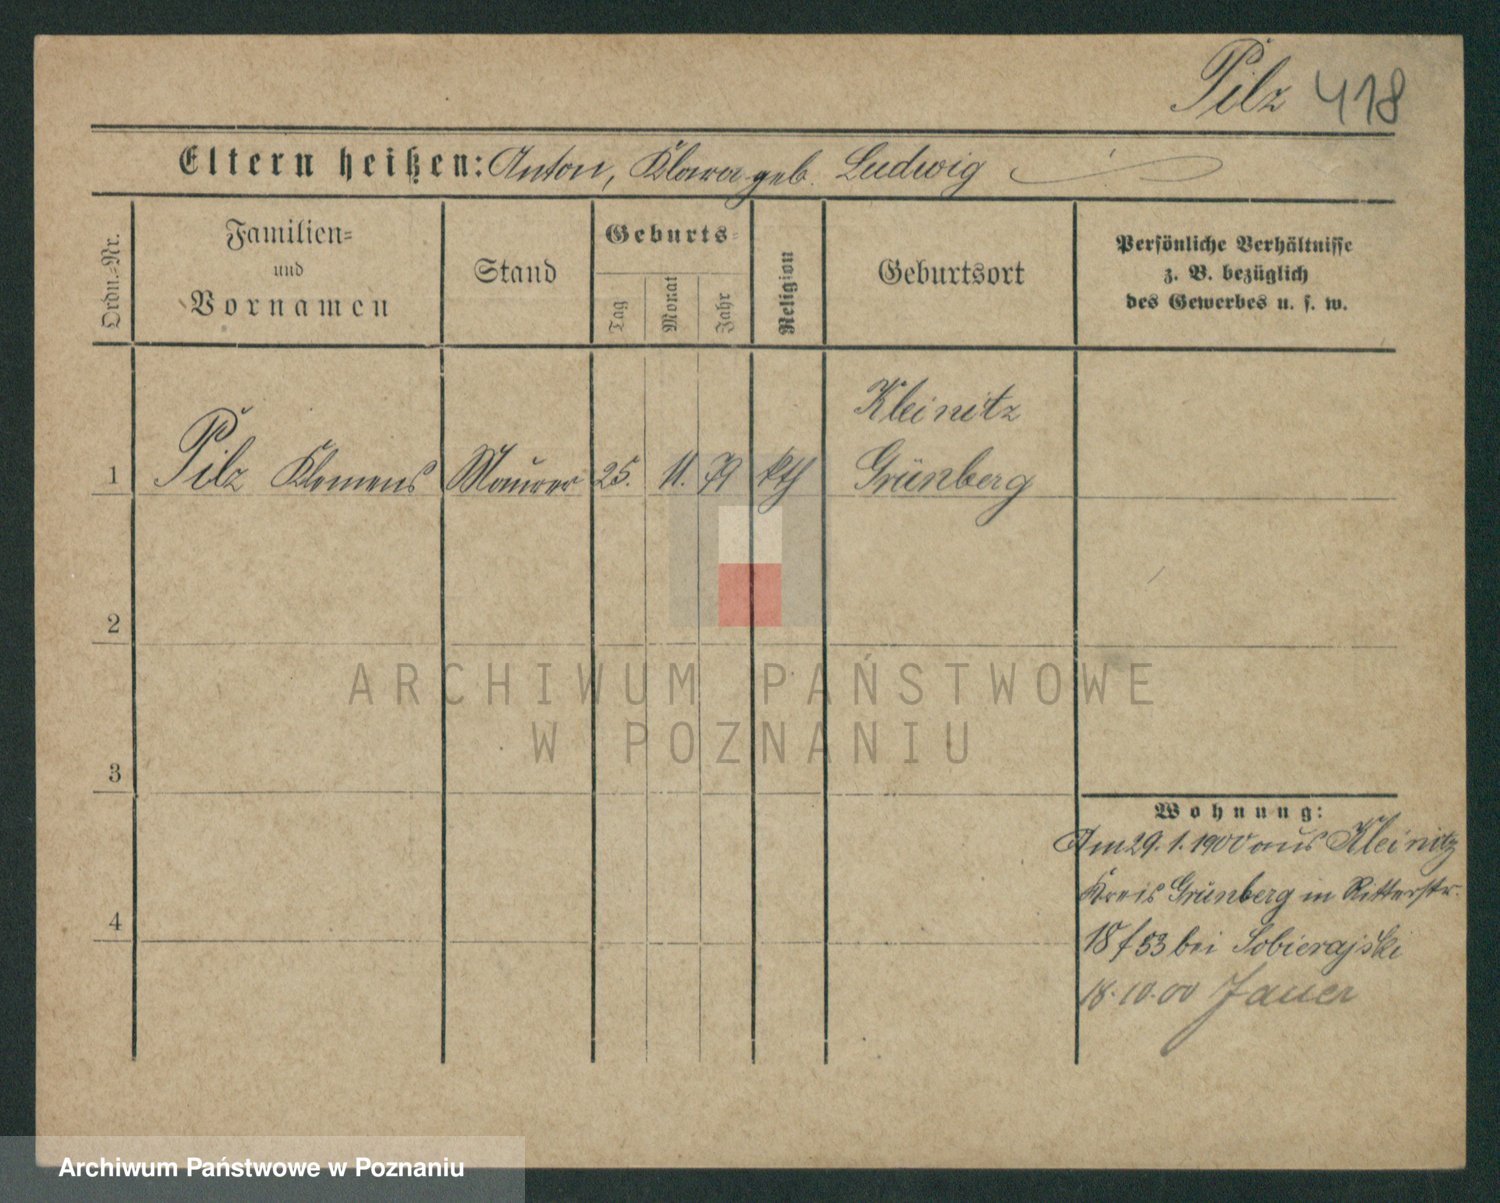 Pilz 418
Eltern heißen: Anton, Klara geb. Ludwig
Ordn.-Nr.
Familien-
und
Vornamen
Stand
Geburts-
Tag
Monat
Jahr
Religion
Geburtsort
Persönliche Verhältnisse
z. B. bezüglich
des Gewerbes u. s. w.
Kleinitz
1 Pilz Klemens Maurer 25. 11. 79 kth Grünberg
2
ARCHIWUM PAŃSTWOWE
W POZNANIU
3
Wohnung:
Am 29. 1. 1900 aus Kleinitz
Kreis Grünberg in Ritterstr.
4
18 f 53 bei Sobierajski
18.10.00 Jauer
Archiwum Państwowe w Poznaniu